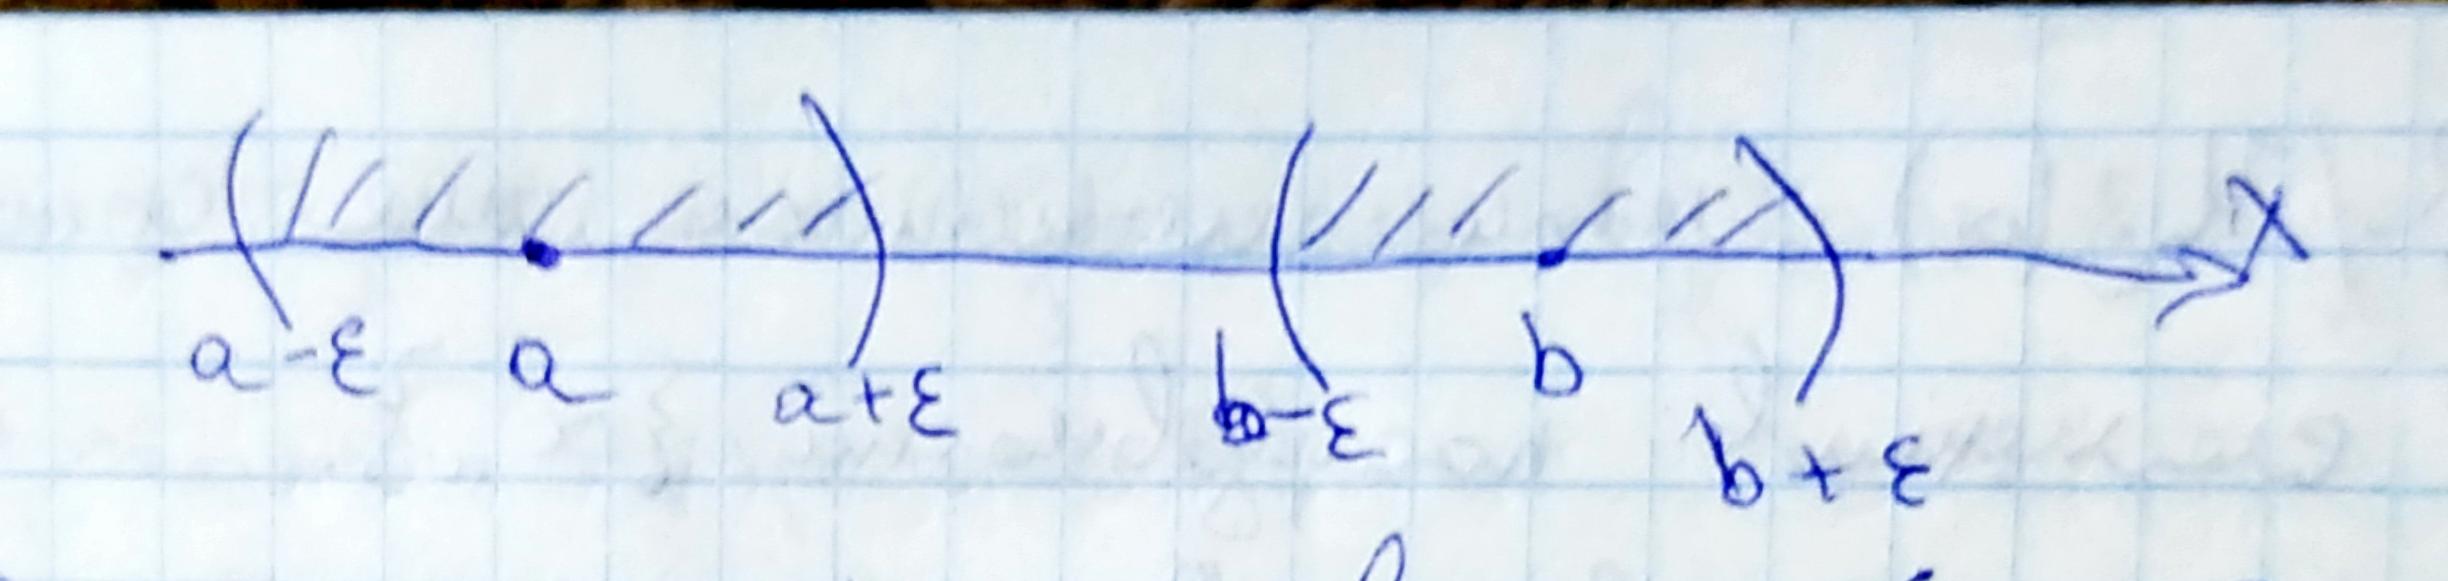 x
a-ε a a+ε b-ε b b+ε